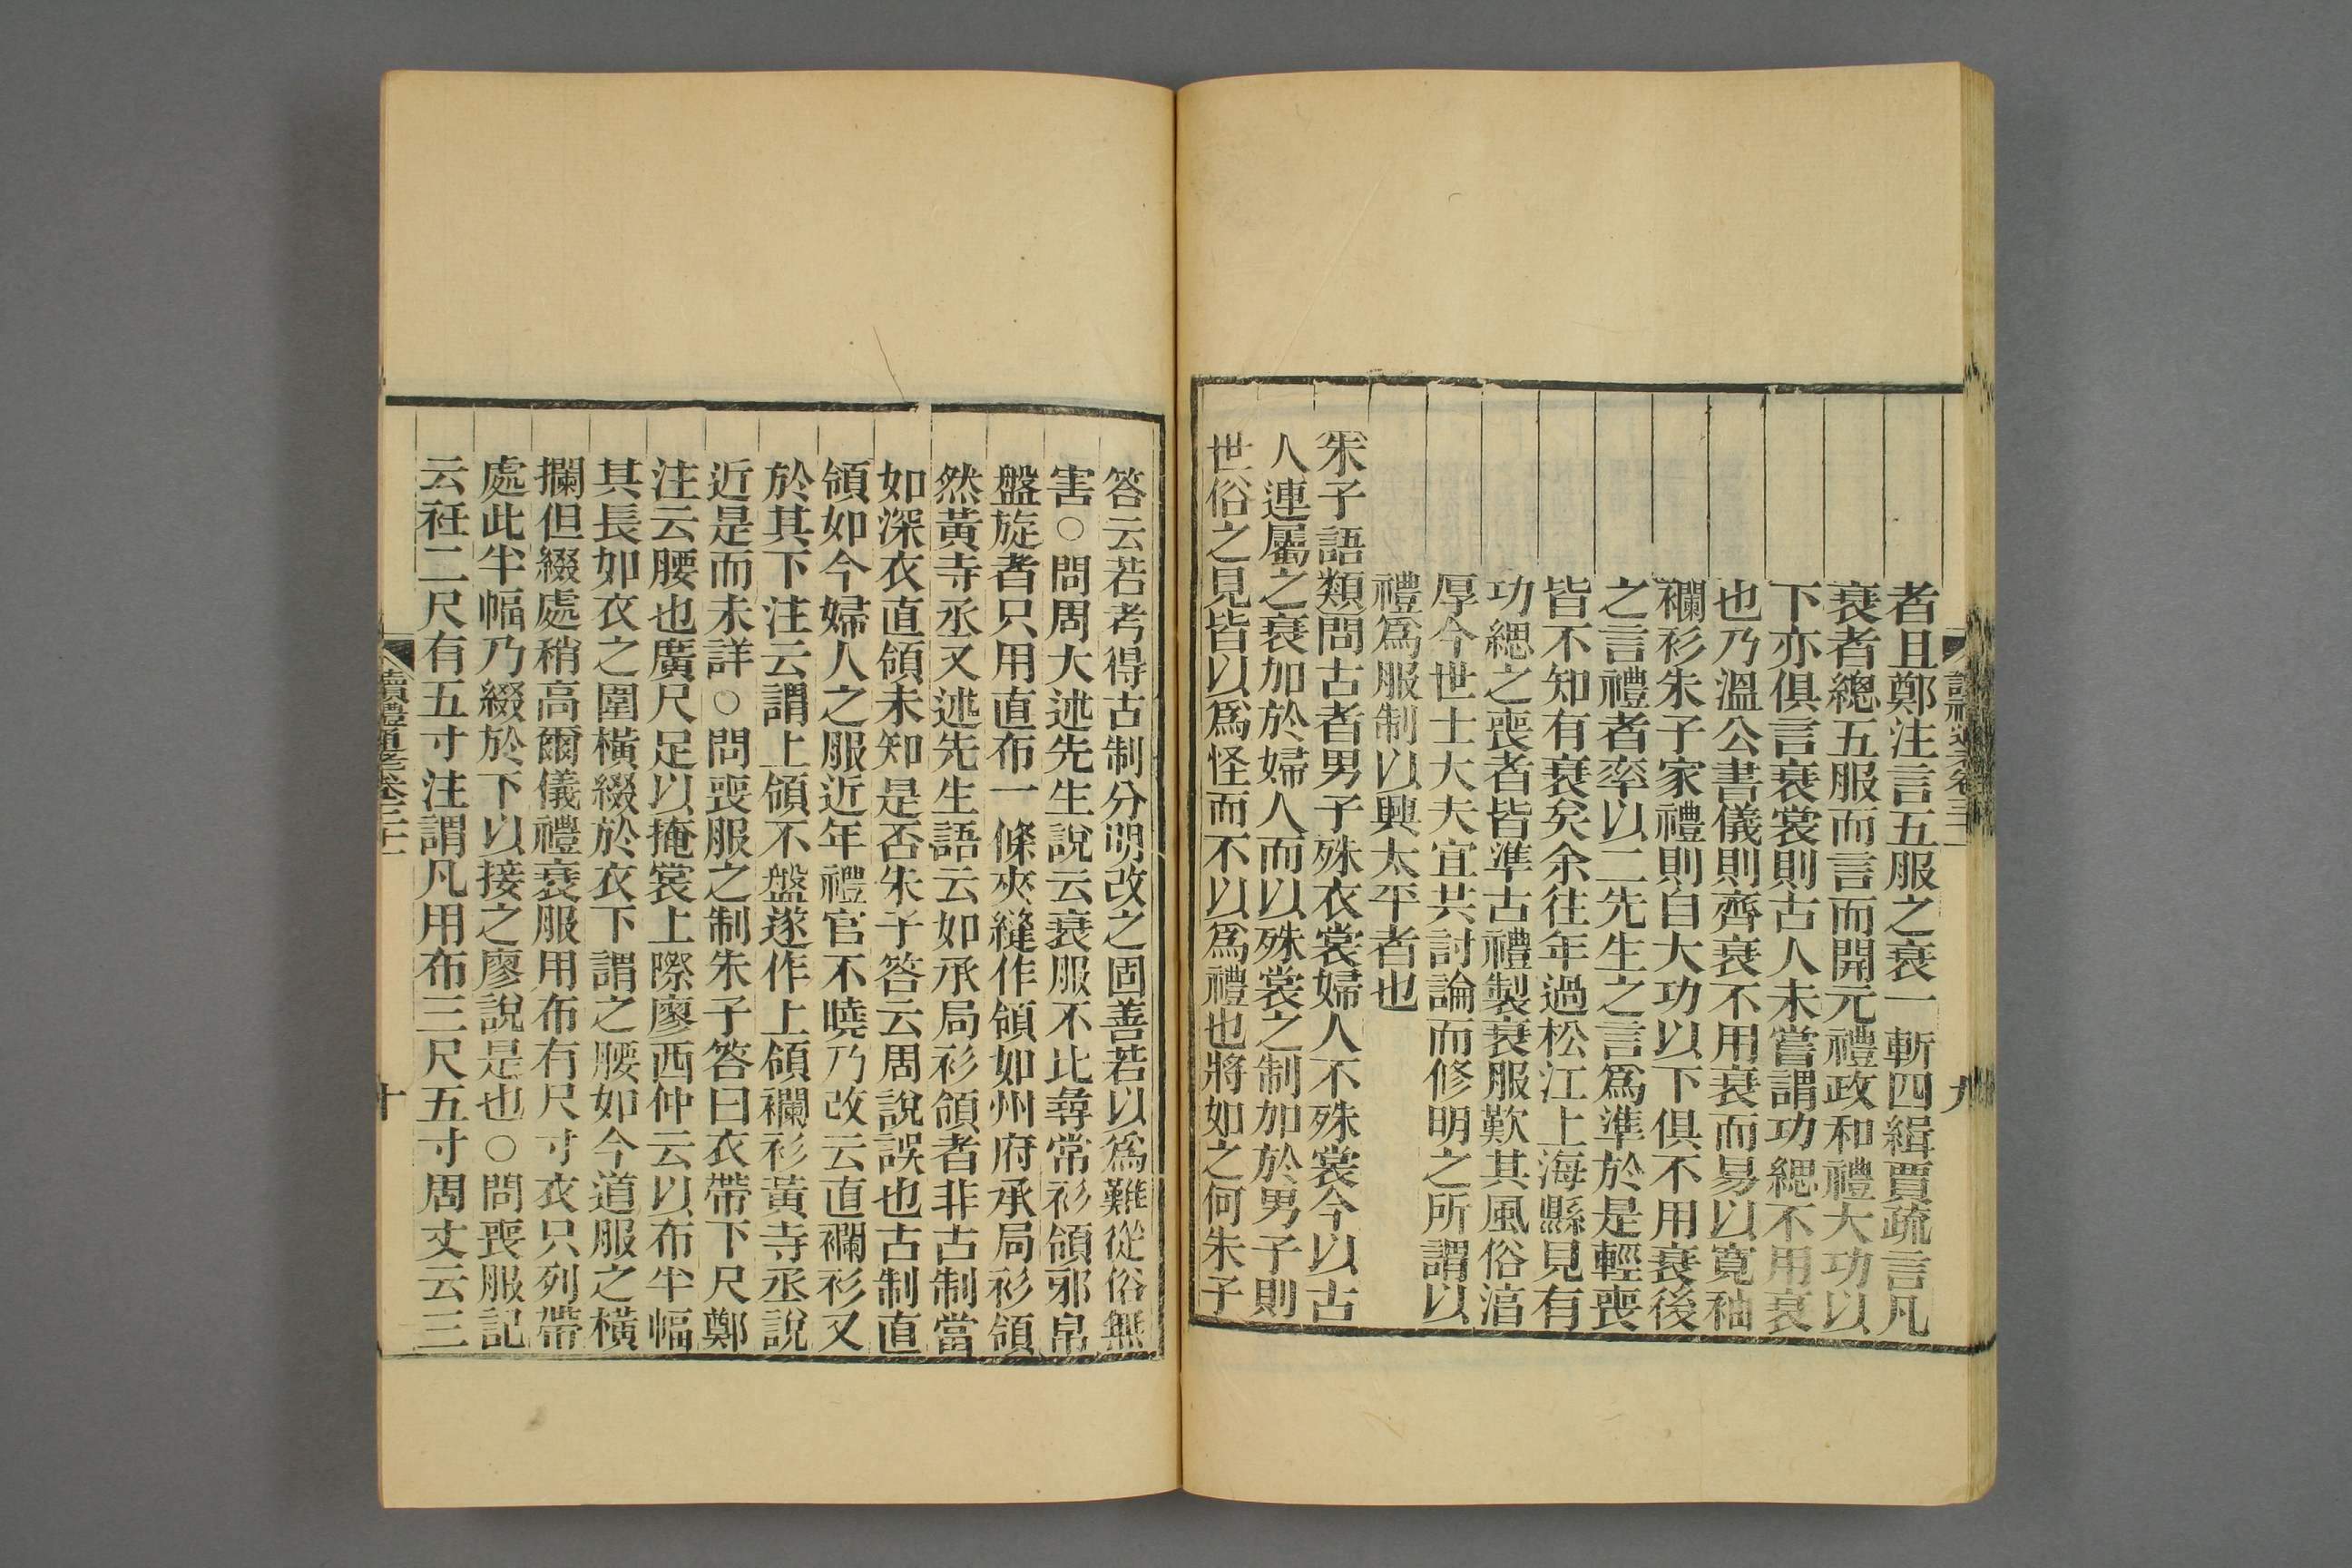 者且鄭注言五服之衰一斬四緝賈疏言凡
衰者總五服而言而開元禮政和禮大功以
下亦俱言衰裳則古人未嘗謂功緦不用衰
也乃溫公書儀則齊衰不用衰而易以寬袖
襴衫朱子家禮則自大功以下俱不用衰後
之言禮者率以二先生之言爲準於是輕喪
皆不知有衰矣余往年過松江上海縣見有
功緦之喪者皆準古禮製衰服歎其風俗湻
厚今世士大夫宜共討論而修明之所謂以
禮爲服制以興太平者也
朱子語類問古者男子殊衣裳婦人不殊裳今以古
人連屬之衰加於婦人而以殊裳之制加於男子則
世俗之見皆以爲怪而不以爲禮也將如之何朱子
九
答云若考得古制分明改之固善若以爲難從俗無
害○問周大述先生說云衰服不比尋常衫領邪帛
盤旋者只用直布一條夾縫作領如州府承局衫領
然黃寺丞又述先生語云如承局衫領者非古制當
如深衣直領未知是否朱子答云周說誤也古制直
領如今婦人之服近年禮官不曉乃改云直襴衫又
於其下注云謂上領不盤遂作上領襴衫黃寺丞說
近是而未詳○問喪服之制朱子答曰衣帶下尺鄭
注云腰也廣尺足以掩裳上際廖西仲云以布半幅
其長如衣之圍橫綴於衣下謂之腰如今道服之橫
攔但綴處稍高爾儀禮衰服用布有尺寸衣只列帶
處此半幅乃綴於下以接之廖說是也○問喪服記
云衽二尺有五寸注謂凡用布三尺五寸周丈云三
讀禮通考卷三十一
十